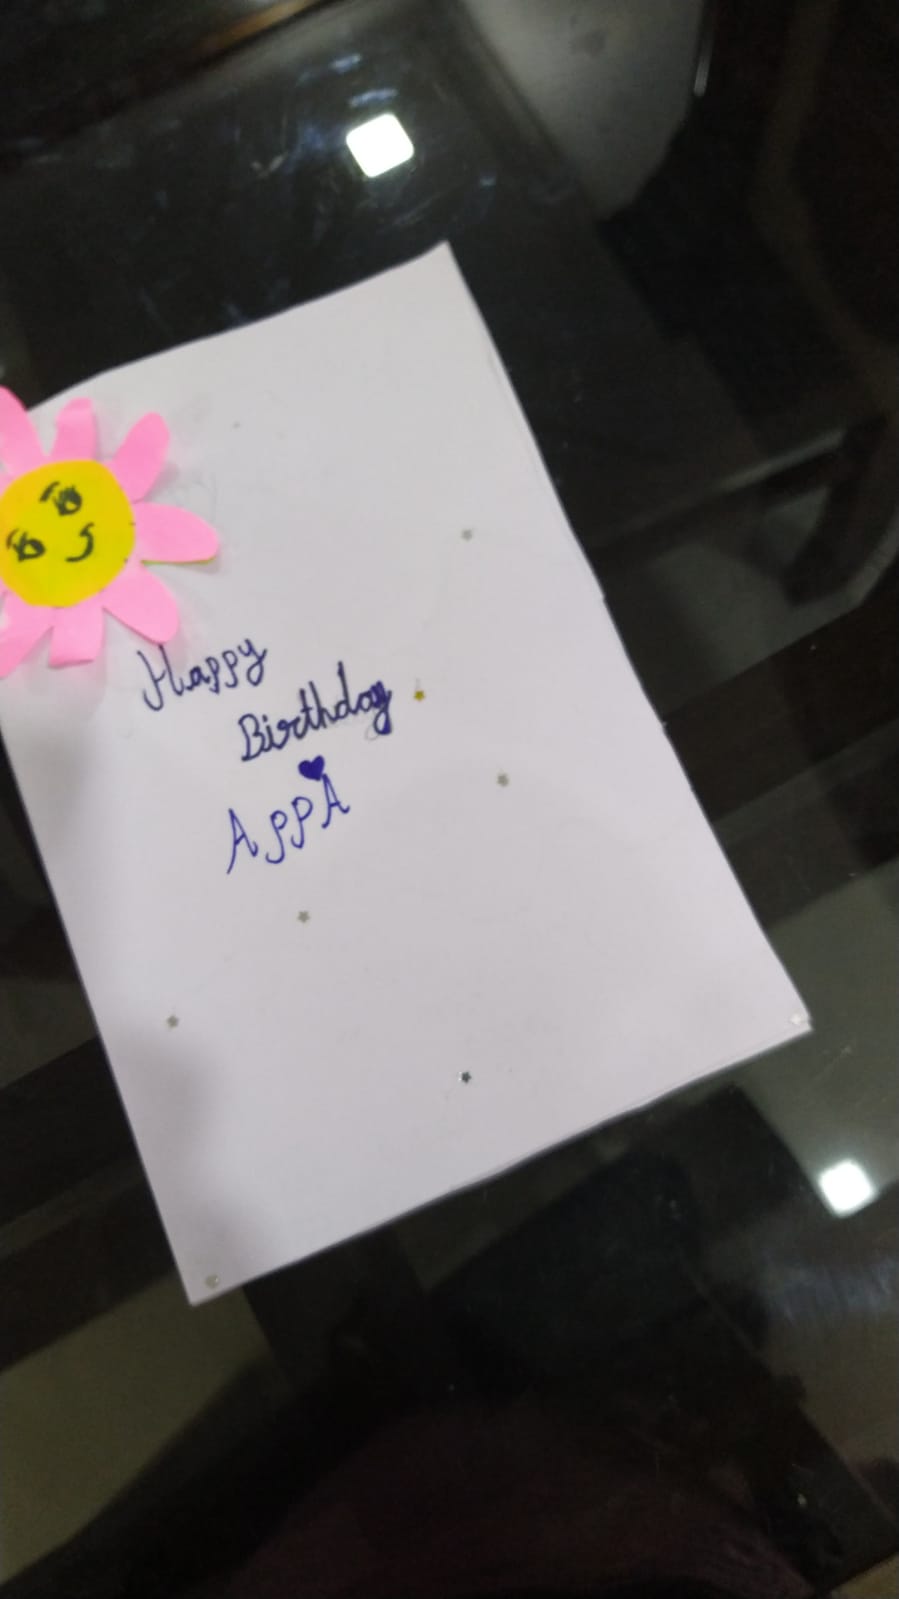 Happy
Birthday
APPA